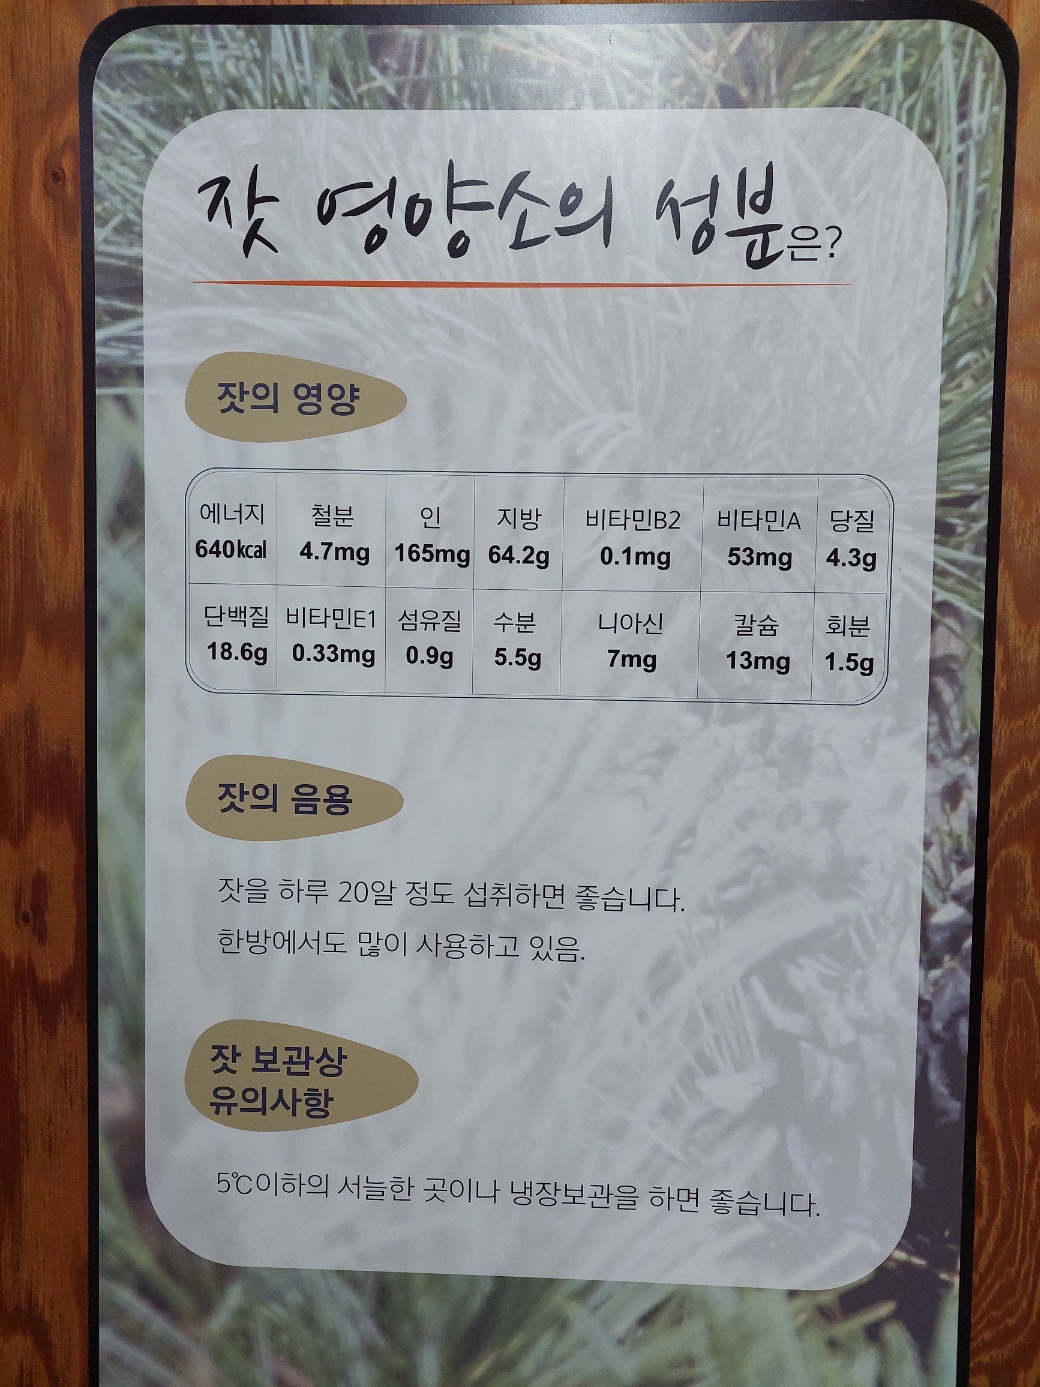 잣 영양소의 성분은?
잣의 영양
에너지 철분 인 지방 비타민B2 비타민A 당질
640㎉ 4.7mg 165mg 64.2g 0.1mg 53mg 4.3g
단백질 비타민E1 섬유질 수분 니아신 칼슘 회분
18.6g 0.33mg 0.9g 5.5g 7mg 13mg 1.5g
잣의 음용
잣을 하루 20알 정도 섭취하면 좋습니다.
한방에서도 많이 사용하고 있음.
잣 보관상
유의사항
5℃이하의 서늘한 곳이나 냉장보관을 하면 좋습니다.